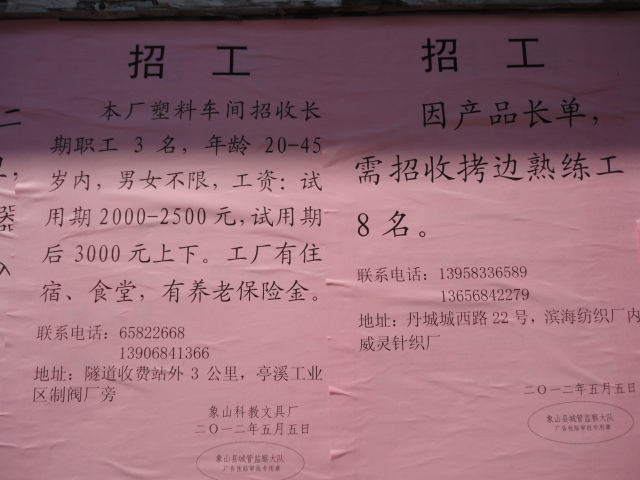 招 工
本厂塑料车间招收长
期职工 3 名，年龄 20-45
岁内，男女不限，工资：试
用期 2000-2500 元，试用期
后 3000 元上下。工厂有住
宿、食堂，有养老保险金。
联系电话：65822668
13906841366
地址：隧道收费站外 3 公里，亭溪工业
区制阀厂旁
象山科教文具厂
二〇一二年五月五日
象山县城管监察大队
广告张贴审批专用章
招 工
因产品长单，
需招收拷边熟练工
8 名。
联系电话：13958336589
13656842279
地址：丹城城西路 22 号，滨海纺织厂内
威灵针织厂
二〇一二年五月五日
象山县城管监察大队
广告张贴审批专用章